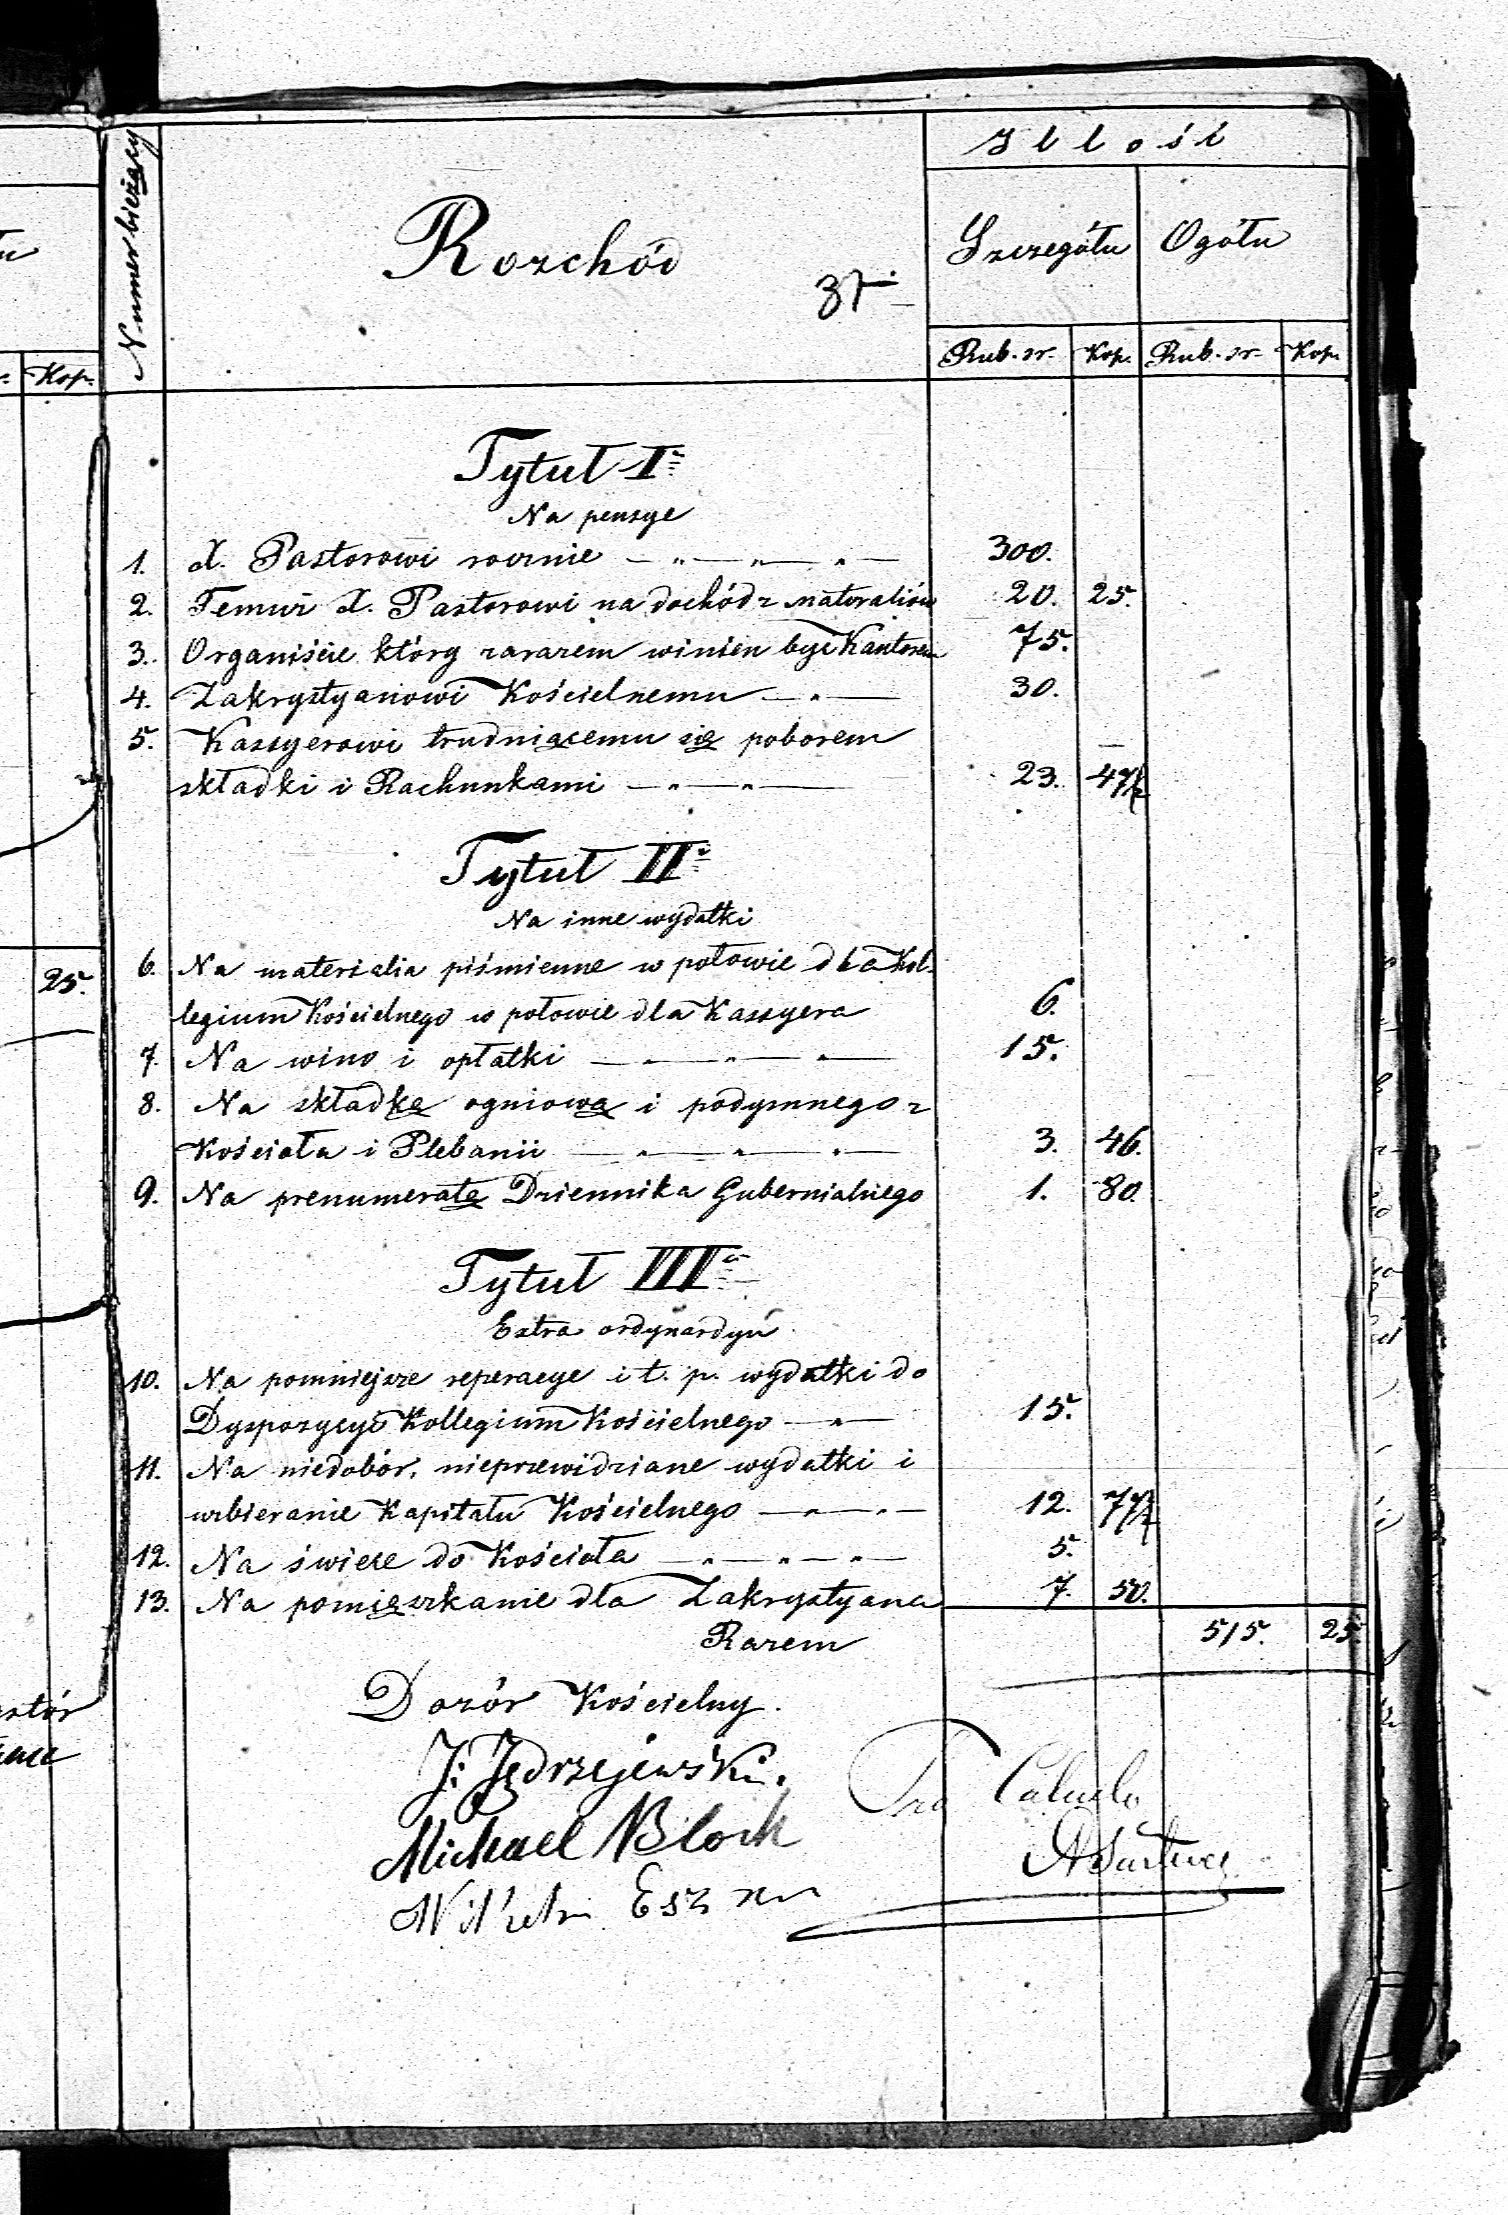 Numer bieżący
Rozchód
37
Illość
Szczegółu
Ogółu
Rub. sr.
Kop.
Rub. sr.
Kop.
Kop.
Tytuł I
Na pensye
1. X. Pastorowi rocznie — „ — „ — „ — 300.
2. Temuż X. Pastorowi na dochód z natoraliów 20. 25.
3. Organiście który zarazem winien być Kantorem 75.
4. Zakrystyanowi Kościelnemu — „ — 30.
5. Kassyerowi trudniącemu się poborem
składki i Rachunkami — „ — „ — 23. 47½
Tytuł II
Na inne wydatki
6. Na materialia piśmienne w połowie dla Kol-
legium Kościelnego w połowie dla Kassyera 6.
7. Na wino i opłatki — „ — „ — „ — 15.
8. Na składkę ogniową i podymnego z
Kościoła i Plebanii — „ — „ — „ — 3. 46.
9. Na prenumeratę Dziennika Gubernialnego 1. 80.
Tytuł III
Extra ordynardyu
10. Na pomniejsze reperacye i t. p. wydatki do
Dyspozycyi Kollegium Kościelnego — „ — 15.
11. Na niedobór, nieprzewidziane wydatki i
uzbieranie Kapitału Kościelnego — „ — „ — 12. 77½
12. Na świece do Kościoła — „ — „ — „ — 5.
13. Na pomięszkanie dla Zakrystyana 7. 50.
Razem 515. 25.
25.
Dozór Kościelny.
J. Jędrzejewski.
Michael Block
Wilhelm
Pro Calculo